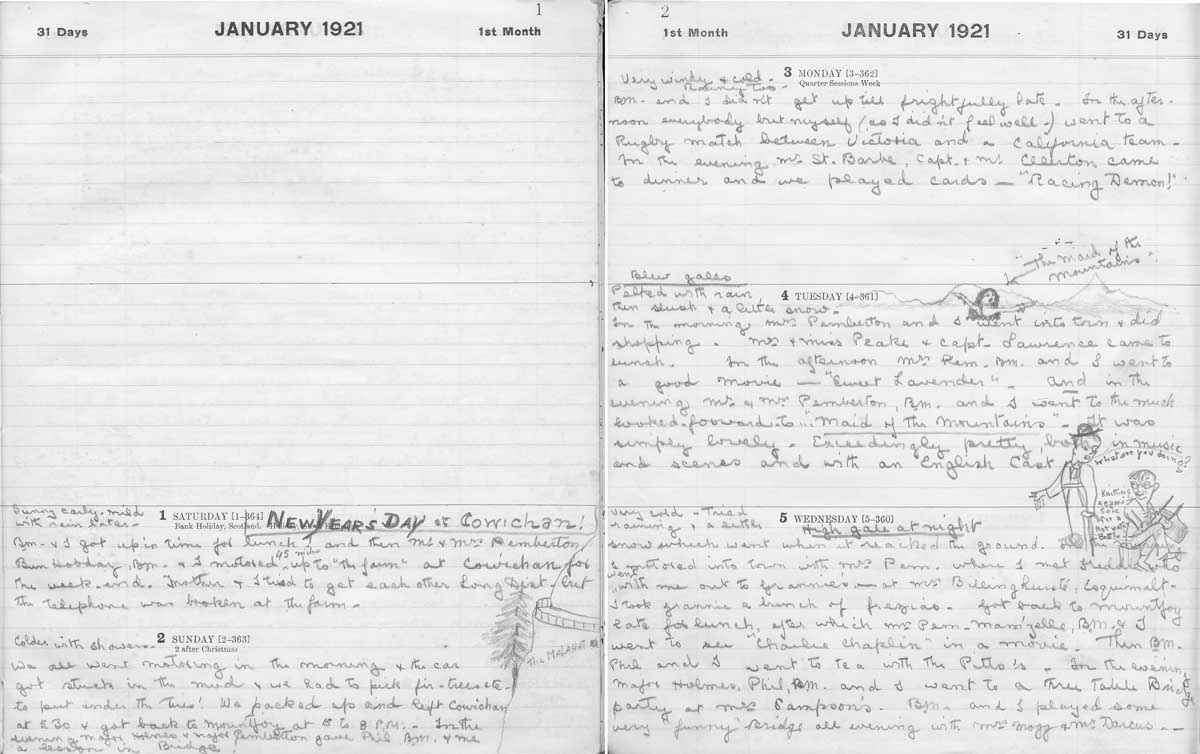 1
31 Days
JANUARY 1921
1st Month
Sunny early - mild
with rain later -
1 SATURDAY [1-364]
Bank Holiday, Scotland.
NEW YEARS DAY at Cowichan!
Bm. & I got up in time for lunch and then Mr & Mrs Pemberton
Hobday, Bm. & I motored 45 miles up to "the farm" at Cowichan for
the week-end. Mother & I tried to get each other Long Dist. but
the telephone was broken at the farm -
THE MALAHAT
Colder with showers -
2 SUNDAY [2-363]
2 after Christmas
We all went motoring in the morning & the car
got stuck in the mud & we had to pick fir-trees etc.
to put under the tires! We packed up and left Cowichan
at 5.30 & got back to Mountjoy at to 8 P.M. - In the
evening Major Holmes & Major Pemberton gave Phil Bm. & me
a lesson in Bridge
2
1st Month
JANUARY 1921
31 Days
Very windy & cold -
Rainy too -
3 MONDAY [3-362]
Quarter Sessions Week
Bm. and I didn't get up till frightfully late - In the after-
noon everybody but myself (as I didn't feel well -) went to a
Rugby match between Victoria and a California team -
In the evening Mrs St. Barbe, Capt. & Mrs came
to dinner and we played cards - "Racing Demon!"
"The Maid of the
Mountains"
Blew gales
Pelted with rain,
then slush & a little snow -
4 TUESDAY [4-361]
In the morning Mrs Pemberton and I went into town & did
shopping. Mrs & Miss Peake & Capt. Lawrence came to
lunch. In the afternoon Mrs Pem. Bm. and I went to
a good movie - "Sweet Lavender" - and in the
evening Mr & Mrs Pemberton, Bm. and I went to the much
looked-forward-to "Maid of the Mountains" - It was
simply lovely - Exceedingly pretty both in music
and scenes and with an English Cast
What are you doing?
Knitting
a
sole
for a
hot water
bottle
Very cold - Tried
raining, & a little
5 WEDNESDAY [5-360]
High gale at night
snow which went when it reached the ground.
I motored into town with Mrs Pem. where I met Freddie who
went with me out to Grannie's - at Mrs Billinghurst's, Esquimalt -
I took Grannie a bunch of frezias - Got back to Mountjoy
late for lunch, after which Mrs Pem. Mamzelle, Bm. & I
went to see "Charlie Chaplin" in a movie. Then Bm.
Phil and I went to tea with the Pitts's - In the evening
Major Holmes, Phil, Bm. and I went to a Three Table Bridge
party at Mrs Sampson's - Bm. and I played some
very "funny" Bridge all evening with Mrs Mogg & Mr Darcus -